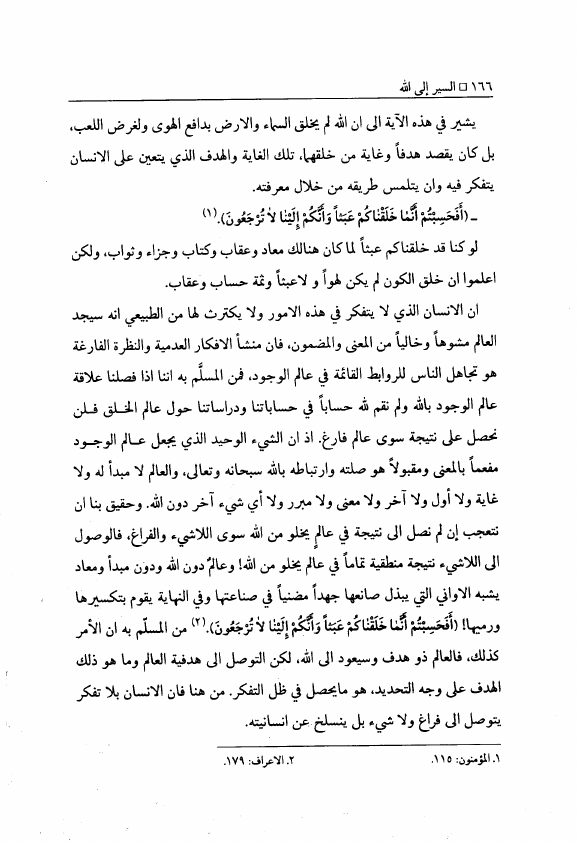 ١٦٦ □ السير إلى الله
يشير في هذه الآية الى ان الله لم يخلق السماء والارض بدافع الهوى ولغرض اللعب،
بل كان يقصد هدفاً وغاية من خلقهما، تلك الغاية والهدف الذي يتعين على الانسان
يتفكر فيه وان يتلمس طريقه من خلال معرفته.
ـ (أَفَحَسِبْتُمْ أَنَّمَا خَلَقْنَاكُمْ عَبَثاً وَأَنَّكُمْ إِلَيْنَا لاَ تُرْجَعُونَ).(١)
لو كنا قد خلقناكم عبثاً لما كان هنالك معاد وعقاب وكتاب وجزاء وثواب، ولكن
اعلموا ان خلق الكون لم يكن لهواً و لاعبثاً وثمة حساب وعقاب.
ان الانسان الذي لا يتفكر في هذه الامور ولا يكترث لها من الطبيعي انه سيجد
العالم مشوهاً وخالياً من المعنى والمضمون، فان منشأ الافكار العدمية والنظرة الفارغة
هو تجاهل الناس للروابط القائمة في عالم الوجود، فمن المسلَّم به اننا اذا فصلنا علاقة
عالم الوجود بالله ولم نقم لله حساباً في حساباتنا ودراساتنا حول عالم الخلق فلن
نحصل على نتيجة سوى عالم فارغ. اذ ان الشيء الوحيد الذي يجعل عالم الوجود
مفعماً بالمعنى ومقبولاً هو صلته وارتباطه بالله سبحانه وتعالى، والعالم لا مبدأ له ولا
غاية ولا أول ولا آخر ولا معنى ولا مبرر ولا أي شيء آخر دون الله. وحقيق بنا ان
نتعجب إن لم نصل الى نتيجة في عالمٍ يخلو من الله سوى اللاشيء والفراغ، فالوصول
الى اللاشيء نتيجة منطقية تماماً في عالم يخلو من الله! وعالمٌ دون الله ودون مبدأ ومعاد
يشبه الاواني التي يبذل صانعها جهداً مضنياً في صناعتها وفي النهاية يقوم بتكسيرها
ورميها! (أَفَحَسِبْتُمْ أَنَّمَا خَلَقْنَاكُمْ عَبَثاً وَأَنَّكُمْ إِلَيْنَا لاَ تُرْجَعُونَ).(٢) من المسلّم به ان الأمر
كذلك، فالعالم ذو هدف وسيعود الى الله، لكن التوصل الى هدفية العالم وما هو ذلك
الهدف على وجه التحديد، هو مايحصل في ظل التفكر. من هنا فان الانسان بلا تفكر
يتوصل الى فراغ ولا شيء بل ينسلخ عن انسانيته.
١. المؤمنون: ١١٥. ٢. الاعراف: ١٧٩.